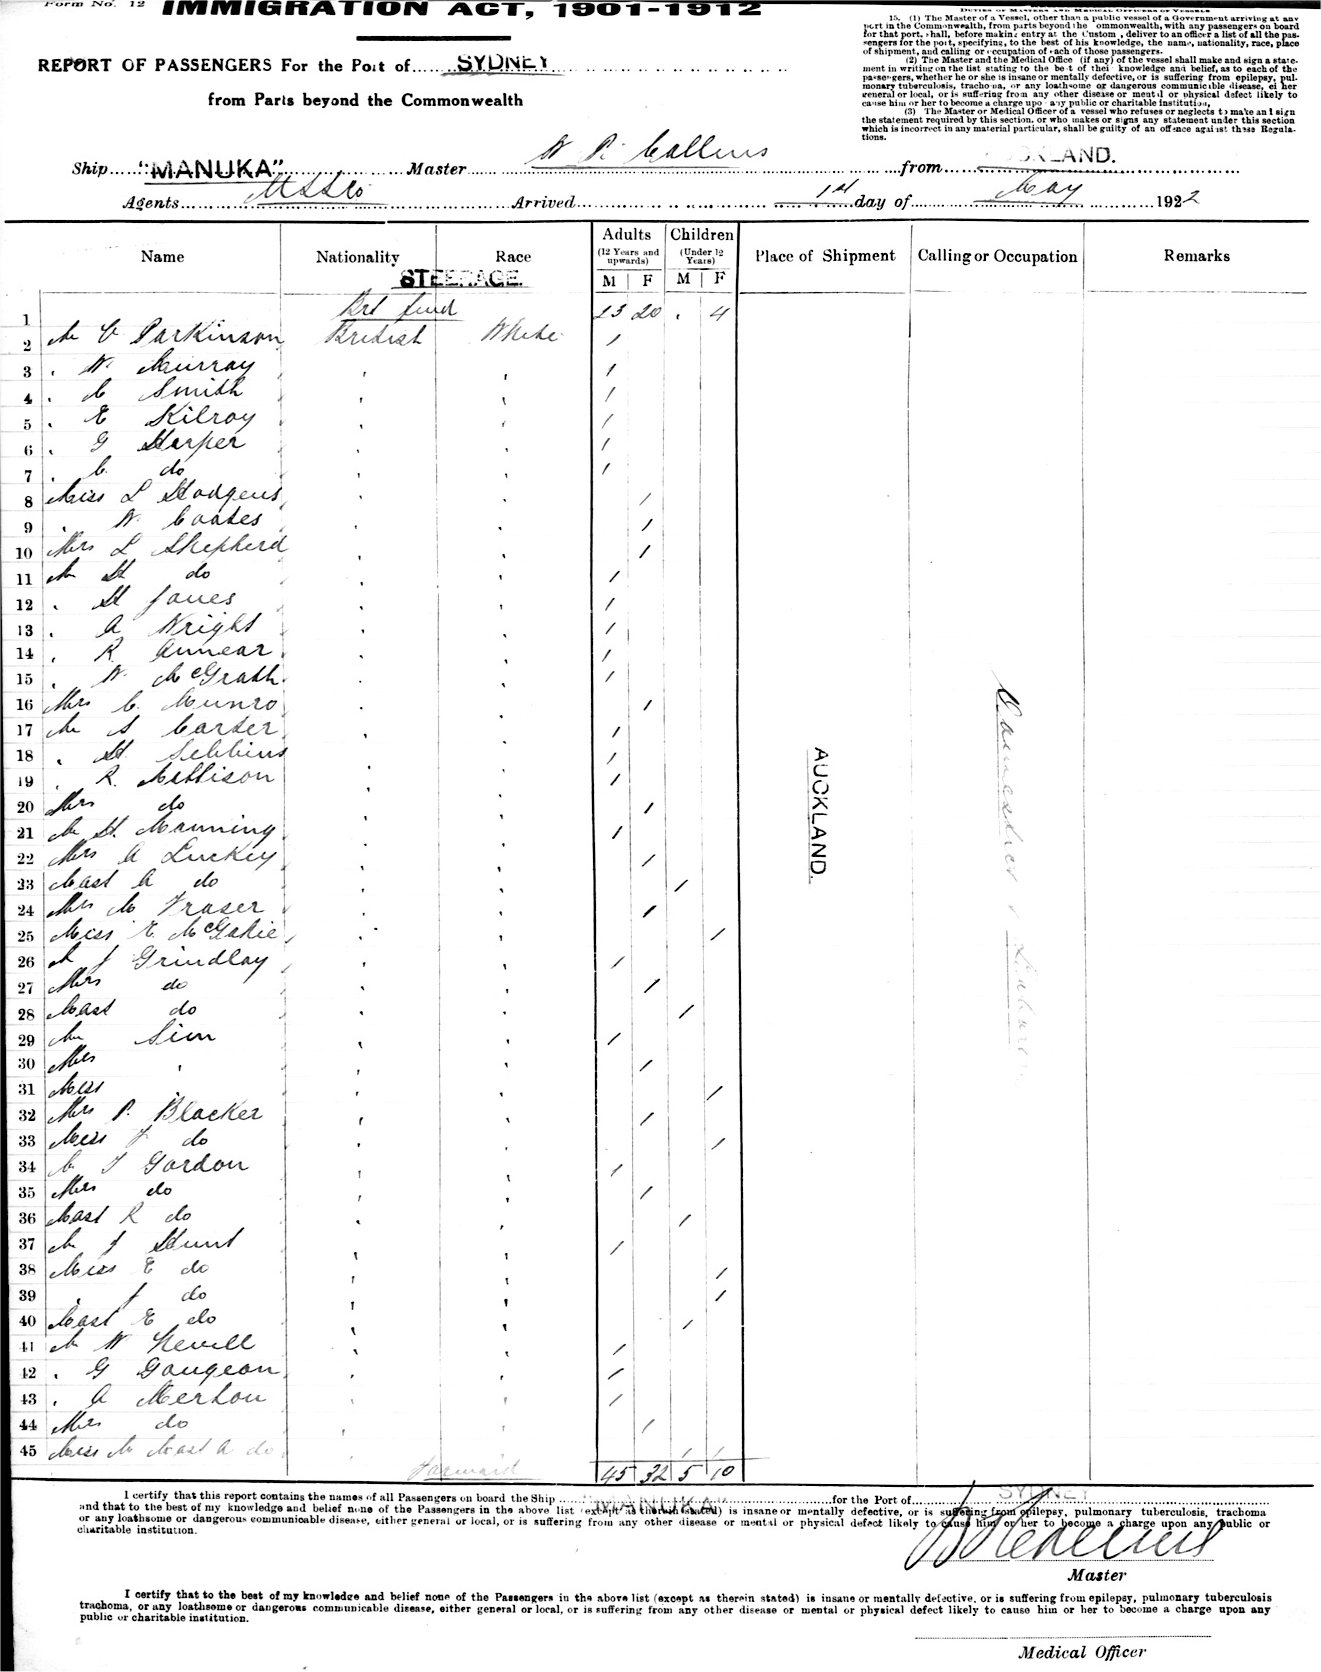 Form No. 12
IMMIGRATION ACT, 1901-1912
REPORT OF PASSENGERS For the Port of SYDNEY
from Parts beyond the Commonwealth
DUTIES OF MASTERS AND MEDICAL OFFICERS OF VESSELS
15. (1) The Master of a Vessel, other than a public vessel of a Government arriving at any
port in the Commonwealth, from parts beyond the Commonwealth, with any passengers on board
for that port, shall, before making entry at the Custom, deliver to an officer a list of all the pas-
sengers for the port, specifying, to the best of his knowledge, the name, nationality, race, place
of shipment, and calling or occupation of each of those passengers.
(2) The Master and the Medical Office (if any) of the vessel shall make and sign a state-
ment in writing on the list stating to the best of their knowledge and belief, as to each of the
passengers, whether he or she is insane or mentally defective, or is suffering from epilepsy, pul-
monary tuberculosis, trachoma, or any loathsome or dangerous communicable disease, either
general or local, or is suffering from any other disease or mental or physical defect likely to
cause him or her to become a charge upon any public or charitable institution,
(3) The Master or Medical Officer of a vessel who refuses or neglects to make and sign
the statement required by this section, or who makes or signs any statement under this section
which is incorrect in any material particular, shall be guilty of an offence against these Regula-
tions.
Ship "MANUKA" Master from CKLAND.
Agents USSCo Arrived 1st day of May 1922
Name Nationality Race Adults (12 Years and upwards) M F Children (Under 12 Years) M F Place of Shipment Calling or Occupation Remarks
STEERAGE.
1 Brt fwd 23 20 . 4
2 Mr C Parkinson British White /
3 . W. Murray /
4 . C Smith /
5 . E Kilroy /
6 . G Harper /
7 . C. do /
8 Miss L Hodgens /
9 . W. Coates /
10 Mrs L Shepherd /
11 Mr H do /
12 . H Jones /
13 . A Wright /
14 . R. Annear /
15 . W. McGrath /
16 Mrs C. Munro /
17 Mr S Carter /
18 . H. /
19 . R. Mattison /
20 Mrs do /
21 Mr H. Manning /
22 Mrs A Luckey /
23 Mast A do /
24 Mrs M Fraser /
25 Miss E. /
26 Mr J Grindlay /
27 Mrs do /
28 Mast do /
29 Mr Sim /
30 Mrs " /
31 Miss . /
32 Mrs P. Blacker /
33 Miss F do /
34 Mr T Gordon /
35 Mrs do /
36 Mast R do /
37 Mr J Hunt /
38 Miss E do /
39 . J do /
40 Mast E do /
41 Mr W Nevill /
42 . G Gougeon /
43 . A Merton /
44 Mrs do /
45 Miss M Mast A do / /
Forward 45 32 5 10
AUCKLAND.
Domestics & Labourers
I certify that this report contains the names of all Passengers on board the Ship "MANUKA" for the Port of SYDNEY
and that to the best of my knowledge and belief none of the Passengers in the above list (except as therein stated) is insane or mentally defective, or is suffering from epilepsy, pulmonary tuberculosis, trachoma
or any loathsome or dangerous communicable disease, either general or local, or is suffering from any other disease or mental or physical defect likely to cause him or her to become a charge upon any public or
charitable institution.
Master
I certify that to the best of my knowledge and belief none of the Passengers in the above list (except as therein stated) is insane or mentally defective, or is suffering from epilepsy, pulmonary tuberculosis
trachoma, or any loathsome or dangerous communicable disease, either general or local, or is suffering from any other disease or mental or physical defect likely to cause him or her to become a charge upon any
public or charitable institution.
Medical Officer